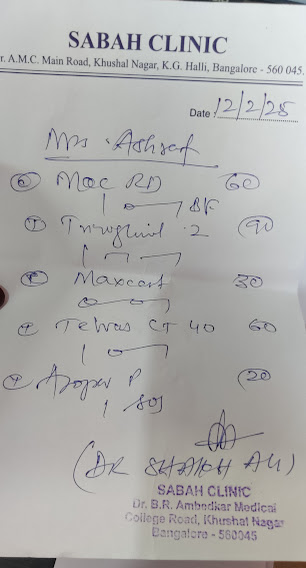 SABAH CLINIC
r. A.M.C. Main Road, Khushal Nagar, K.G. Halli, Bangalore - 560 045.
Date : 12/2/25
Mrs Ashraf
Mac RD 60
1 0 1 BF
2 90
1
Maxcort 30
0 0 1
CT 40 60
1 0 1
P 20
1 SOS
(DR SHAIKH ALI)
SABAH CLINIC
Dr. B.R. Ambedkar Medical
College Road, Khushal Nagar
Bangalore - 560045